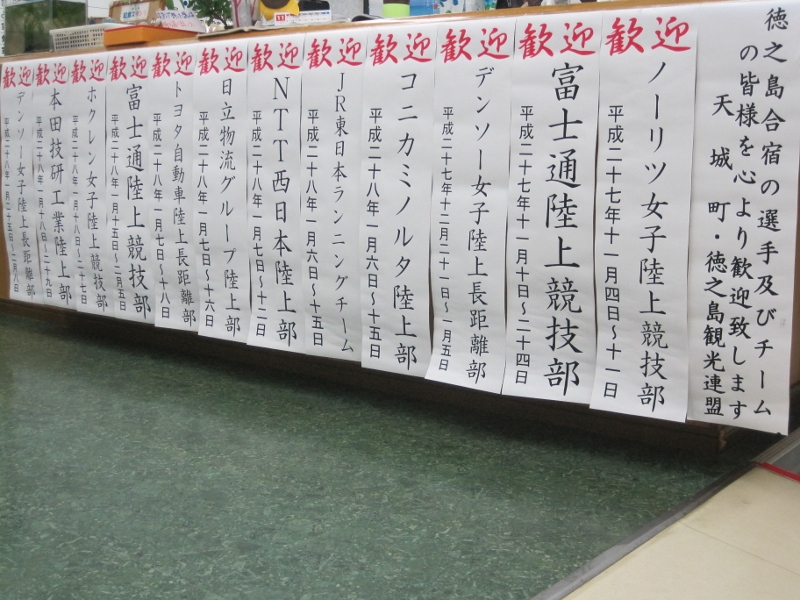 徳之島合宿の選手及びチーム
の皆様を心より歓迎致します
天城町・徳之島観光連盟
歓迎
ノーリツ女子陸上競技部
平成二十七年十一月四日～十一日
歓迎
富士通陸上競技部
平成二十七年十一月十日～二十四日
歓迎
デンソー女子陸上長距離部
平成二十七年十二月二十一日～一月五日
歓迎
コニカミノルタ陸上部
平成二十八年一月六日～十五日
歓迎
JR東日本ランニングチーム
平成二十八年一月六日～十五日
歓迎
NTT西日本陸上部
平成二十八年一月七日～十二日
歓迎
日立物流グループ陸上部
平成二十八年一月七日～十六日
歓迎
トヨタ自動車陸上長距離部
平成二十八年一月七日～十八日
歓迎
富士通陸上競技部
平成二十八年一月十五日～二月五日
歓迎
ホクレン女子陸上競技部
平成二十八年一月十六日～二十七日
歓迎
本田技研工業陸上部
平成二十八年一月十八日～二十九日
歓迎
デンソー女子陸上長距離部
平成二十八年一月二十五日～二月八日